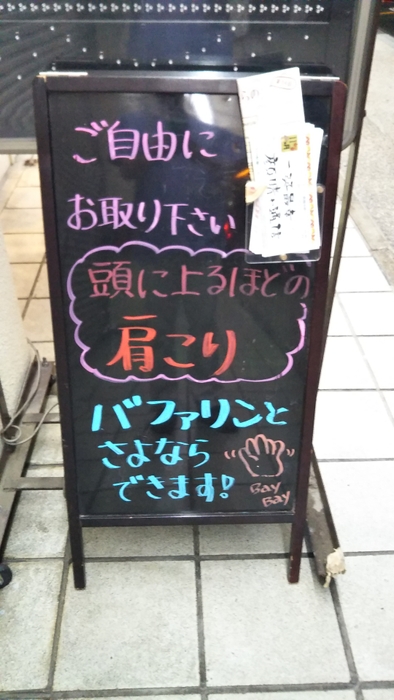 ご自由に
お取り下さい
頭に上るほどの
肩こり
バファリンと
さよなら
できます!
Bay
Bay